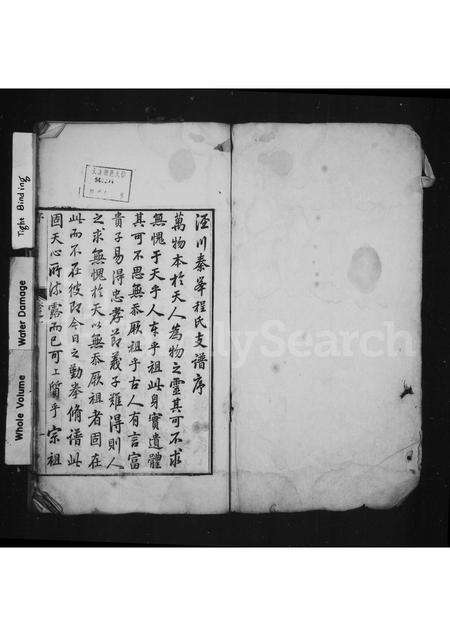 涇川秦峯程氏支譜序
萬物本於天人為物之靈其可不求
無愧于天乎人本乎祖此身實遺體
其可不思無忝厥祖乎古人有言富
貴子易得忠孝節義子難得則人
之求無愧於天以無忝厥祖者固在
此而不在彼即今日之勤拳脩譜此
固天心所流露而已可上質乎宗祖
Tight Binding
Water Damage
Whole Volume
FamilySearch